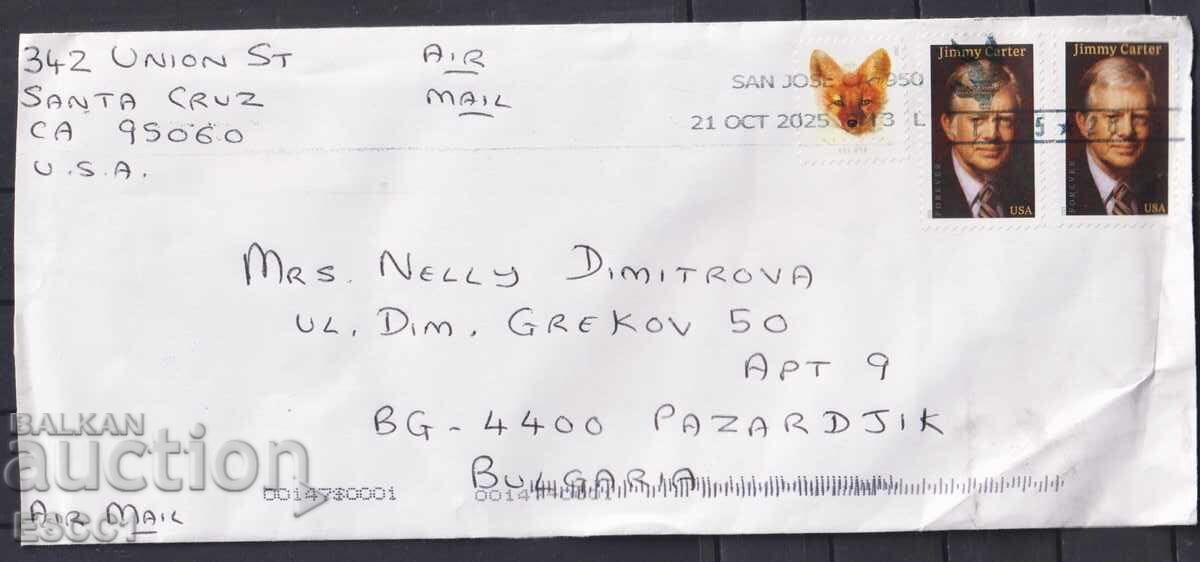 342 UNION ST
SANTA CRUZ
CA 95060
U.S.A.
AIR
MAIL
SAN JOSE CA 950
21 OCT 2025
Jimmy Carter
FOREVER
USA
Jimmy Carter
FOREVER
USA
MRS. NELLY DIMITROVA
UL. DIM. GREKOV 50
APT 9
BG-4400 PAZARDJIK
BULGARIA
00147$0001
AIR MAIL
BALKAN
auction
ESCC1